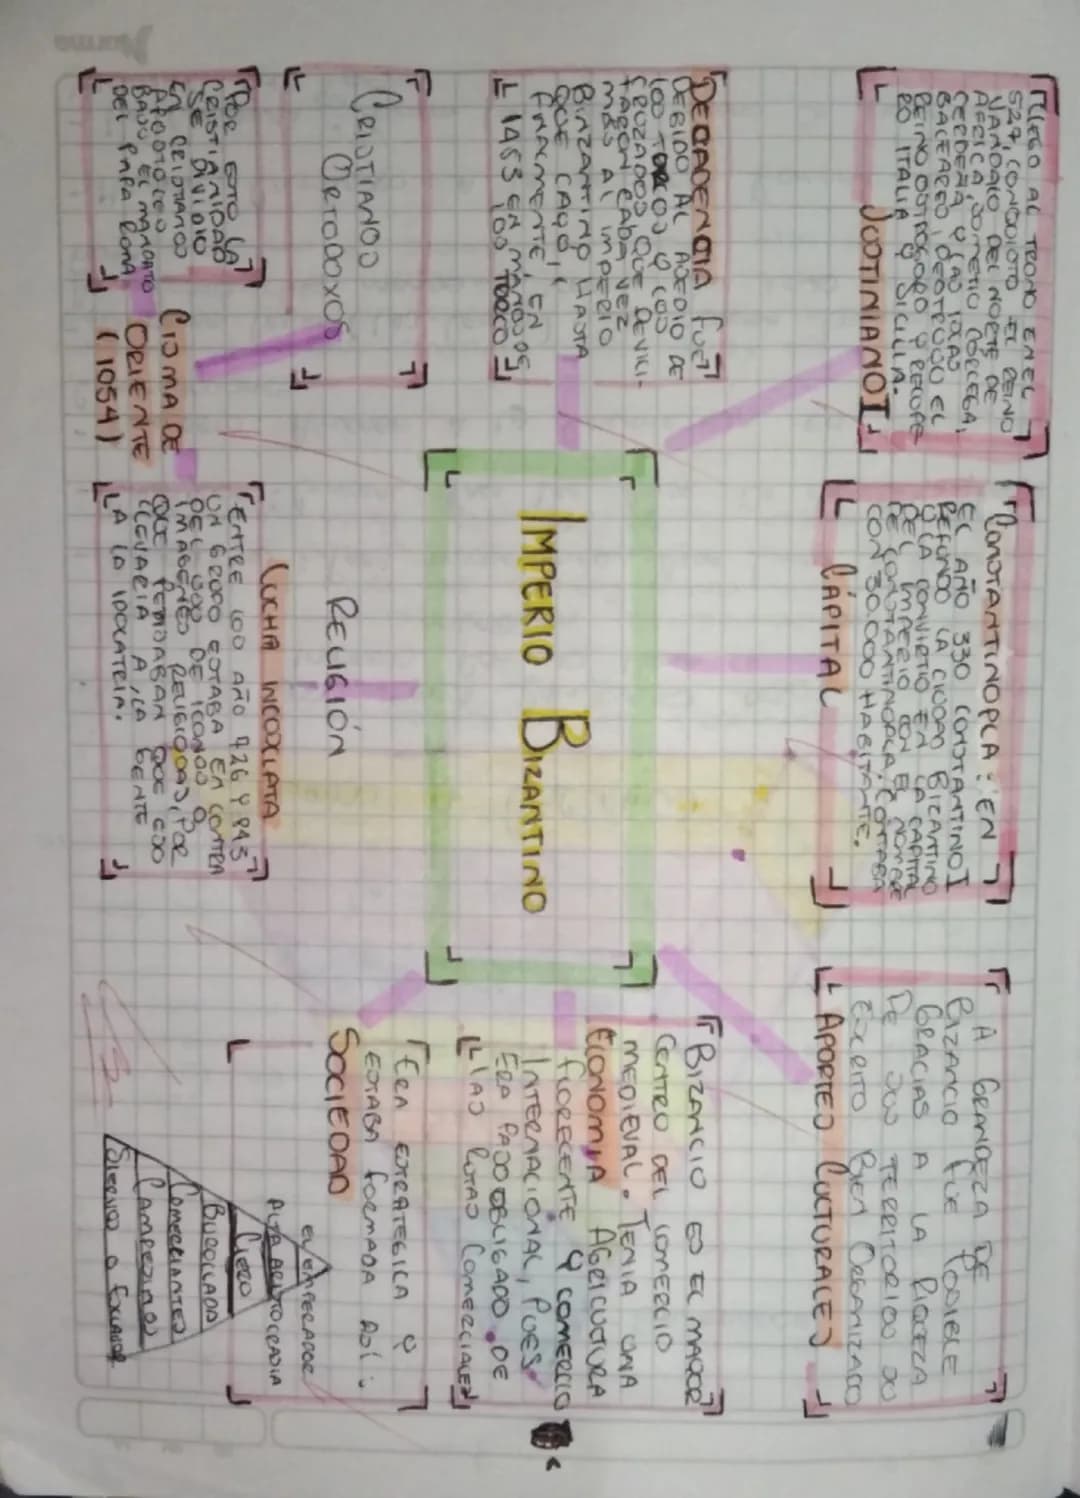 LLEGO AL TRONO EN EL
527, CONQUISTO EL REINO
VANDALO DEL NORTE DE
AFRICA, SOMETIO CORCEGA,
CERDEÑA Y LAS ISLAS
BALEARES, DESTRUYO EL
REINO OSTROGODO Y RECUPE
RO ITALIA Y SICILIA.
JUSTINIANO I
CONSTANTINOPLA: EN
EL AÑO 330 CONSTANTINO I
REFUNDO LA CIUDAD BIZANTINO
Y LA CONVIRTIO EN LA CAPITAL
DEL IMPERIO CON EL NOMBRE
DE CONSTANTINOPLA, CONTABA
CON 30.000 HABITANTE.
CAPITAL
A GRANDEZA DE
BIZANCIO FUE POSIBLE
GRACIAS A LA RIQUEZA
DE SUS TERRITORIOS SU
EJERCITO BIEN ORGANIZADO
APORTES CULTURALES
DECADENCIA FUE
DEBIDO AL ASEDIO DE
LOS TURCOS Y LOS
CRUZADOS QUE DEVILI-
TARON CADA VEZ
MAS AL IMPERIO
BINZANTINO HASTA
QUE CAYO,
FINALMENTE, EN
1453 EN MANOS DE
LOS TURCOS
IMPERIO BIZANTINO
BIZANCIO ES EL MAYOR
CENTRO DEL COMERCIO
MEDIEVAL. TENIA UNA
ECONOMIA AGRICULTURA
FLORECENTE Y COMERCIO
INTERNACIONAL, PUES
ERA PASO OBLIGADO DE
LAS RUTAS COMERCIALES
CRISTIANOS
ORTODOXOS
RELIGIÓN
ERA ESTRATEGICA Y
ESTABA FORMADA ASI:
SOCIEDAD
EMPERADOR
ALTA ARISTOCRACIA
CLERO
BUROCLADA
COMERCIANTES
CAMPESINOS
SIERVOS O ESCLAVOS
POR ESTO LA
CRISTIANIDAD
SE DIVIDIO
EN CRISTIANOS
APOSTOLICOS
BAJO EL MANDATO
DEL PAPA ROMA
CISMA DE
ORIENTE
(1054)
LUCHA INCOOCLATA
ENTRE LOS AÑO 726 Y 843
UN GRUPO ESTABA EN CONTRA
DEL USO DE ICONOS O
IMAGENES RELIGIOSAS, POR
QUE PENSABAN QUE ESO
LLEVARIA A LA GENTE
A LA IDOLATRIA.
Norma